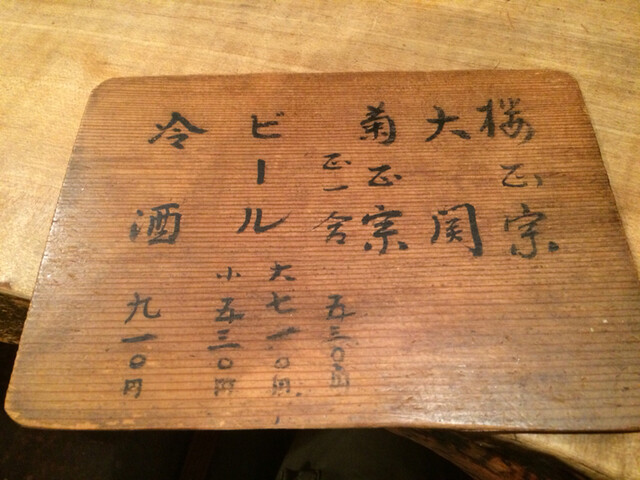 桜正宗
大関
菊正宗
正一合 五三〇円
ビール 大七一〇円
小五三〇円
冷酒 九一〇円